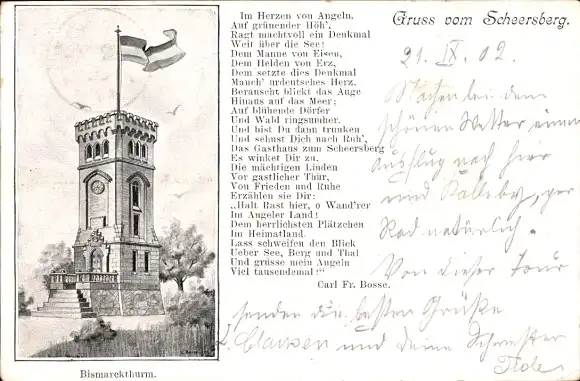 Im Herzen von Angeln,
Auf grünender Höh',
Ragt machtvoll ein Denkmal
Weit über die See!
Dem Manne von Eisen,
Dem Helden von Erz,
Dem setzte dies Denkmal
Manch' urdeutsches Herz.
Berauscht blickt das Auge
Hinaus auf das Meer;
Auf blühende Dörfer
Und Wald ringsumher.
Und bist Du dann trunken
Und sehnst Dich nach Ruh',
Das Gasthaus zum Scheersberg
Es winket Dir zu.
Die mächtigen Linden
Vor gastlicher Thür,
Von Frieden und Ruhe
Erzählen sie Dir:
„Halt Rast hier, o Wand'rer
Im Angeler Land!
Dem herrlichsten Plätzchen
Im Heimatland.
Lass schweifen den Blick
Ueber See, Berg und Thal
Und grüsse mein Angeln
Viel tausendemal!"
Carl Fr. Bosse.
Gruss vom Scheersberg.
21. IX. 02.
Machen bei dem
schönen Wetter einen
Ausflug nach hier
und Kalleby, per
Rad natürlich.
Von dieser Tour
senden die besten Grüße
Clausen und deine Schwester
Bismarckthurm.